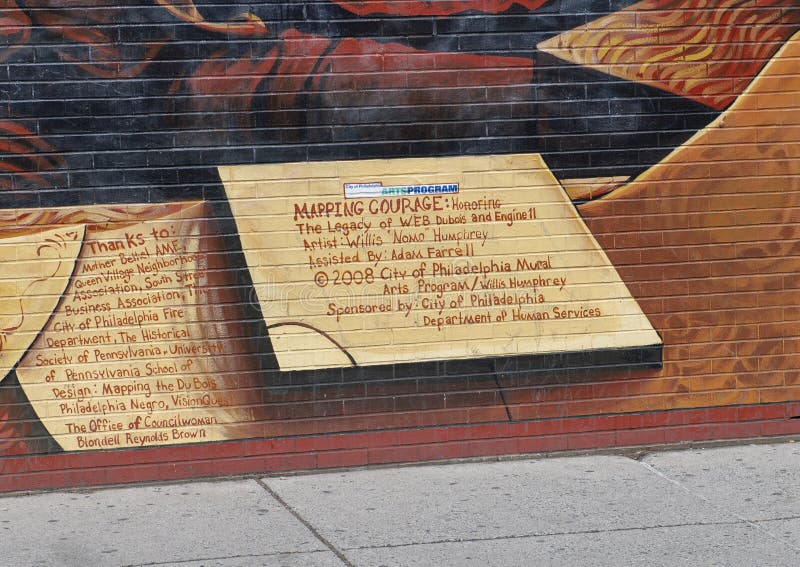 Thanks to:
Mother Bethel AME,
Queen Village Neighborhood
Association, South Street
Business Association, The
City of Philadelphia Fire
Department, The Historical
Society of Pennsylvania, University
of Pennsylvania School of
Design: Mapping the Du Bois
Philadelphia Negro, VisionQuest
The Office of Councilwoman
Blondell Reynolds Brown
City of Philadelphia
ARTSPROGRAM
MAPPING COURAGE: Honoring
The Legacy of WEB Dubois and Engine 11
Artist: Willis "Nomo" Humphrey
Assisted By: Adam Farrell
© 2008 City of Philadelphia Mural
Arts Program/Willis Humphrey
Sponsored by: City of Philadelphia
Department of Human Services